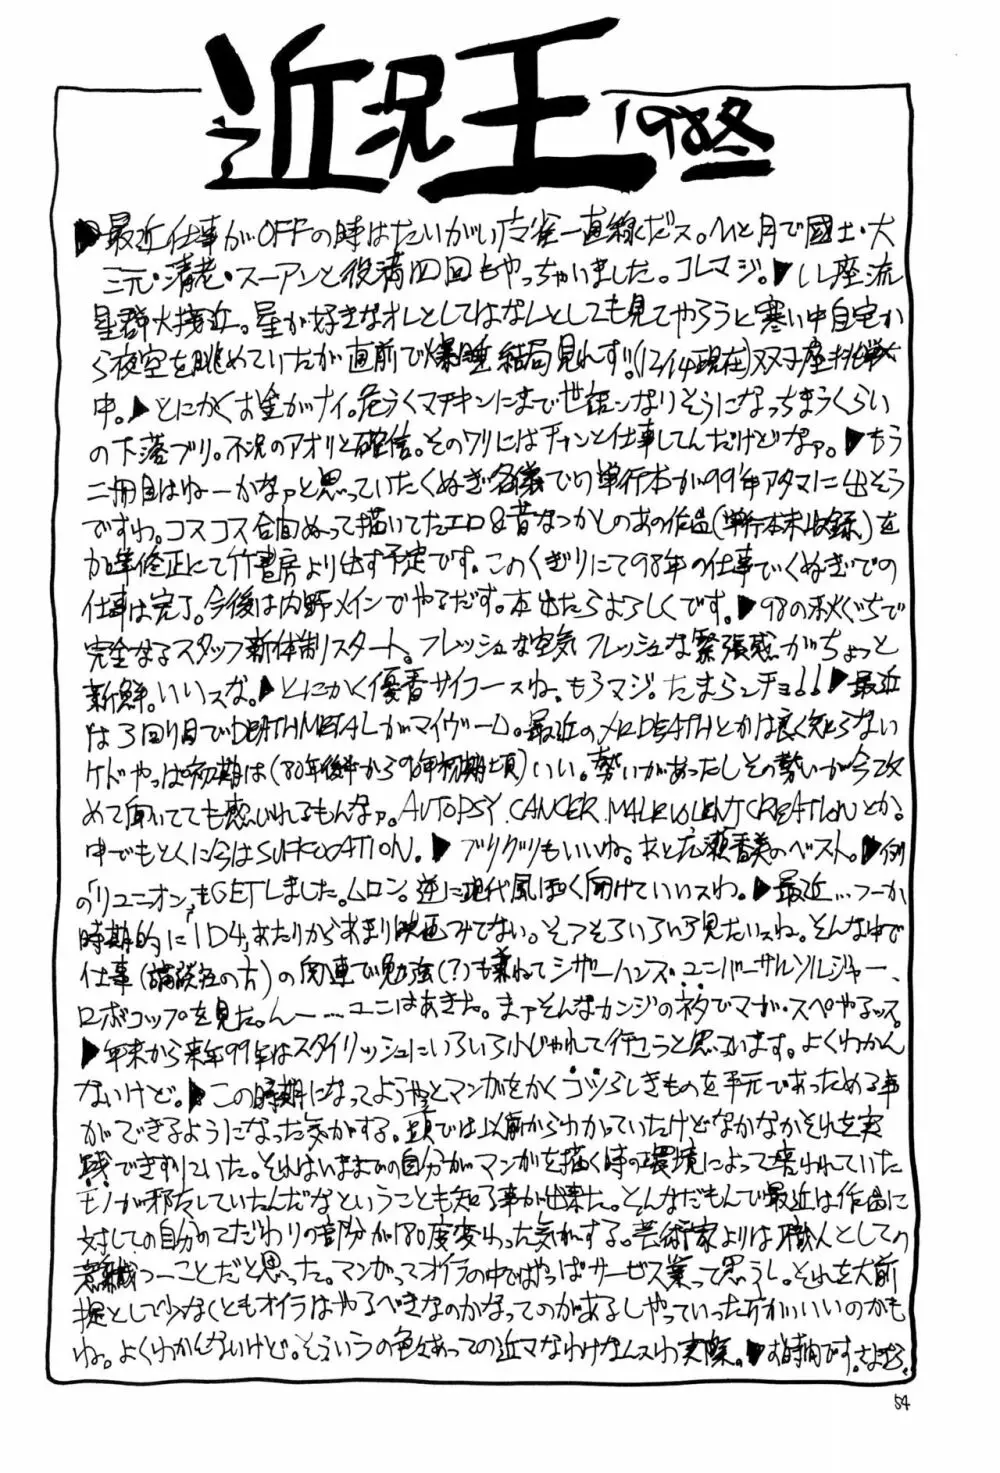 近況王 1998冬
▶最近仕事がOFFの時はたいがい麻雀一直線だス。ひと月で國士・大
三元・清老・スーアンと役満四回もやっちゃいました。コレマジ。▶しし座流
星群大接近。星が好きなオレとしてはなんとしても見てやろうと寒い中自宅か
ら夜空を眺めていたが直前で爆睡 結局見れず!!(12/14現在)双子座挑戦
中。▶とにかくお金がナイ。危うくマチキンにまで世話ンなりそうになっちまうくらい
の下落ブリ。不況のアオリと確信。そのワリにはチャンと仕事してんだけどなァ。▶もう
二冊目はねーかなァと思っていたくぬぎ名義での単行本が99年アタマに出そう
ですわ。コスコス合間ぬって描いてたエロ&昔なつかしのあの作品(単行本未収録)を
加筆修正にて竹書房より出す予定です。このくぎりにて98年の仕事でくぬぎでの
仕事は完了。今後は内野メインでやるだす。本出たらよろしくです。▶98の秋ぐちで
完全なるスタッフ新体制スタート。フレッシュな空気 フレッシュな緊張感がちょっと
新鮮。いいスな。▶とにかく優香サイコースね。もうマジ。たまらンチョ!!▶最近
は3回り目でDEATHMETALがマイヴーム。最近のメロDEATHとかは良く知らない
ケドやっぱ初期は(80年後半から90年初期頃)いい。勢いがあったしその勢いが今改
めて聞いてても感じいれるもんなァ。AUTOPSY.CANCER.MALEVOLENTCREATIONとか。
中でもとくに今はSUFFOCATION.▶ブリグリもいいね。あと広瀬香美のベスト。▶例
の「リユニオン」もGETしました。ムロン。逆に現代風ぽく聞けていいスわ。▶最近…フーか
時期的に「ID4」あたりからあまり映画みてない。そろそろいろいろ見たいスね。そんな中で
仕事(講談社の方)の関連で勉強(?)も兼ねてシザーハンズ・ユニバーサルソルジャー、
ロボコップを見た。んー…ユニはあきた。まァそんなカンジのネタでマガ・スペやるッス。
▶年末から来年99年はスタイリッシュにいろいろ小じゃれて行こうと思っています。よくわかん
ないけど。▶この時期になってようやくマンガをかくコツらしきものを手元であっためる事
ができるようになった気がする。頭では以前からわかっていたけどなかなかそれを実
践できずにいた。それはいままでの自分がマンガを描く時の環境によって培われていた
モノが邪魔していたんだなということも知る事が出来た。そんなだもんで最近は作品に
対しての自分のこだわりの部分が180度変わった気がする。芸術家よりは職人としての
意識っつーことだと思った。マンガってオイラの中ではやっぱサービス業って思うし。それを大前
提として少なくともオイラはやるべきなのかなってのがあるしやっていった方がいいのかも
ね。よくわかんないけど。そういうの色々あっての近マなわけなんスわ実際。▶お時間です。さよなら。
54